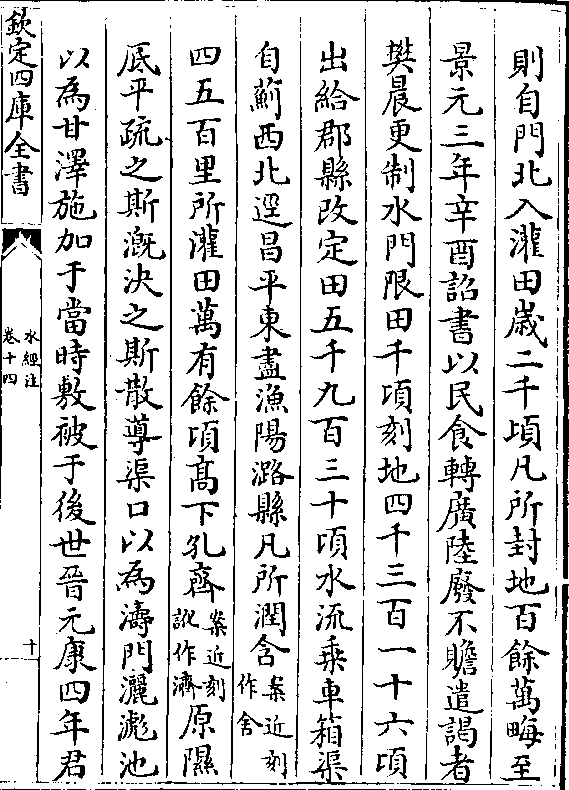 則自門北入灌田歲二千頃凡所封地百餘萬畮至
景元三年辛酉詔書以民食轉廣陸廢不贍遣謁者
樊晨更制水門限田千頃刻地四千三百一十六頃
出給郡縣改定田五千九百三十頃水流乗車箱渠
自薊西北逕昌平東盡漁陽潞縣凡所潤含案近刻作舍
四五百里所灌田萬有餘頃髙下孔齊案近刻訛作濟原隰
厎平疏之斯漑決之斯散導渠口以為濤門灑滮池
以為甘澤施加于當時敷被于後世晉元康四年君
欽定四庫全書
水經注
卷十四
十